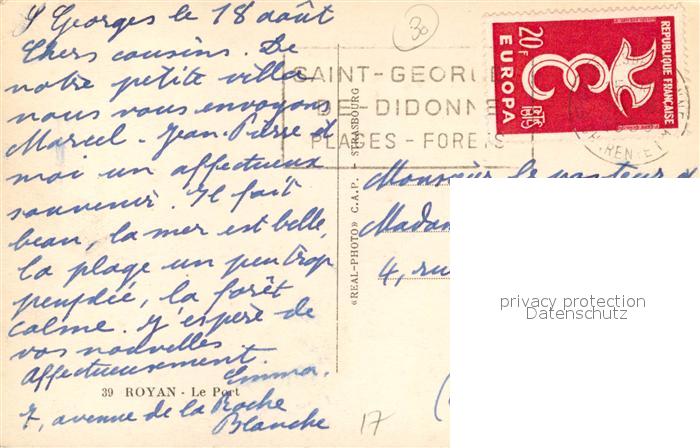 S Georges le 18 août
Chers cousins. De
notre petite villa
nous vous envoyons
Marcel - Jean-Pierre et
moi un affectueux
souvenir. Il fait
beau, la mer est belle,
la plage un peu trop
peuplée, la forêt
calme. J'espère de
vos nouvelles
affectueusement.
Emma.
39 ROYAN - Le Port
7, avenue de la Roche
Blanche
«REAL-PHOTO» C.A.P. - STRASBOURG
30
SAINT-GEORGES
DE-DIDONNE
PLAGES - FORETS
20F
EUROPA
REPUBLIQUE FRANÇAISE
POSTES
Monsieur le pasteur
Madam
4, ru
17
privacy protection
Datenschutz